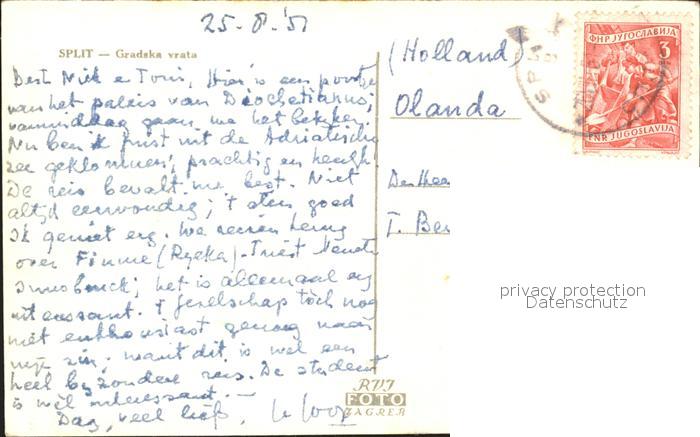 25-8-'51
SPLIT — Gradska vrata
Best Niek e Toni, Hier is een poortje
van het paleis van Diocletianus;
vanmiddag gaan we het bekijken.
Nu ben ik juist uit de Adriatische
zee geklommen; prachtig en heerlijk
De reis bevalt me best. Niet
altijd eenvoudig; 't eten goed
Ik geniet erg. We reizen terug
over Fiume (Rijeka) - Triest Venetië
Innsbruck; het is allemaal erg
interessant. 't Gezelschap tòch nog
niet enthousiast genoeg naar
mijn zin; want dit is wel een
heel bijzondere reis. De student
is wèl interessant. —
Dag, veel liefs,
(Holland)
Olanda
Den Heer
T. Be
ФНР ЈУГОСЛАВИЈА
3
FNR JUGOSLAVIJA
privacy protection
Datenschutz
RVI
FOTO
ZAGREB